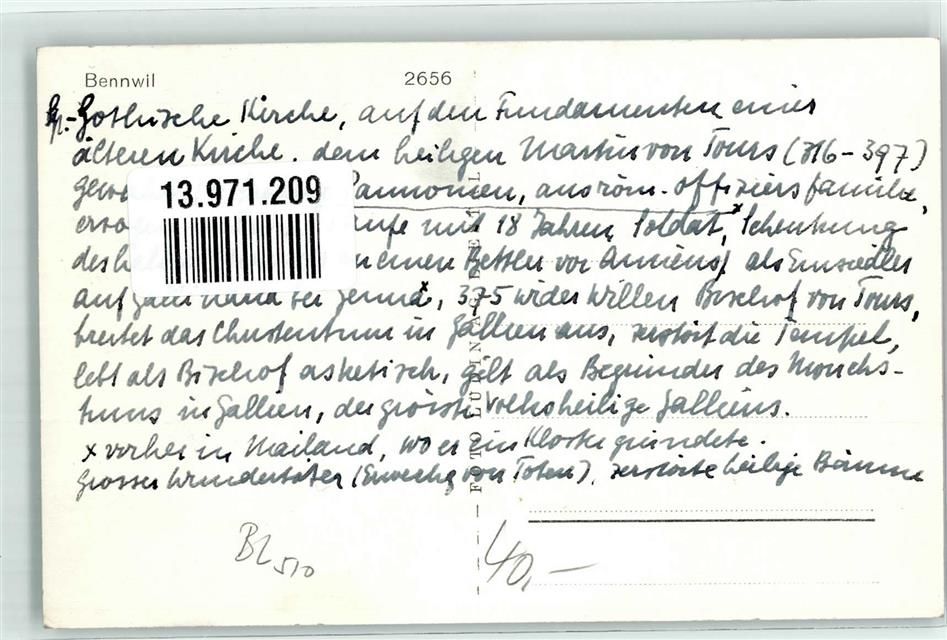 Bennwil 2656
Sp.-Gothische Kirche, auf den Fundamenten einer
älteren Kirche. dem heiligen Martin von Tours (316-397)
13.971.209
Pannonien, aus röm. Offiziersfamilie,
mit 18 Jahren, Soldat,x Schenkung
des einen Bettler vor Amiens, als Einsiedler
auf Gallinaria bei Genuax, 375 wider Willen Bischof von Tours,
breitet das Christentum in Gallien aus, zerstört die Tempel,
lebt als Bischof asketisch, gilt als Begründer des Mönchs-
tums in Gallien, der grösste Volksheilige Galliens.
x vorher in Mailand, wo er ein Kloster gründete.
Grosser Wundertäter (Erweckg von Toten), zerstörte heilige Bäume
FOTO LÜDIN AG
BL 510
40,-